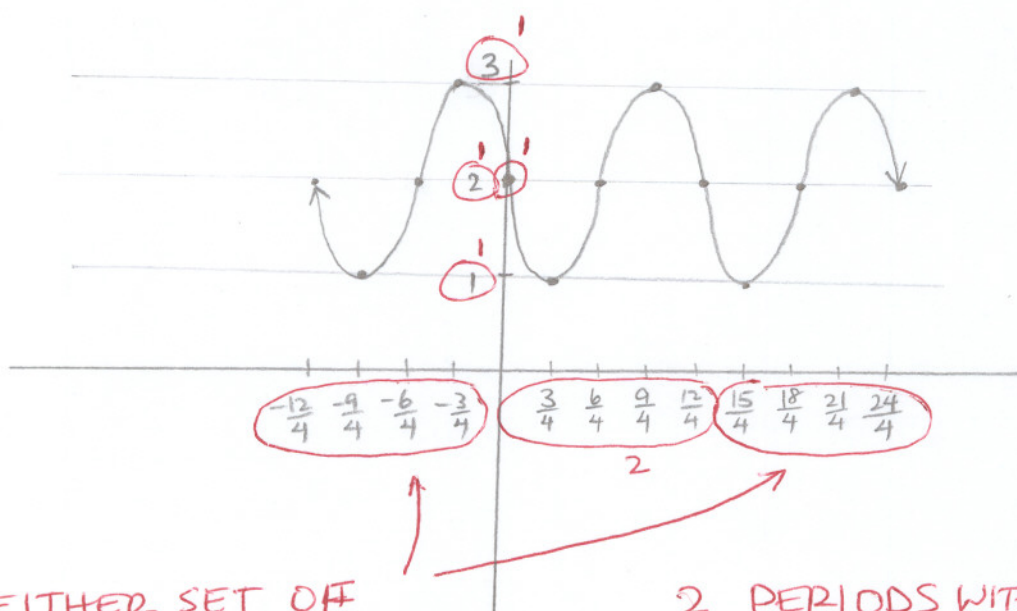 1
3
1 1
2
1
1
-12/4 -9/4 -6/4 -3/4 3/4 6/4 9/4 12/4 15/4 18/4 21/4 24/4
2
EITHER SET OF
2 PERIODS WIT